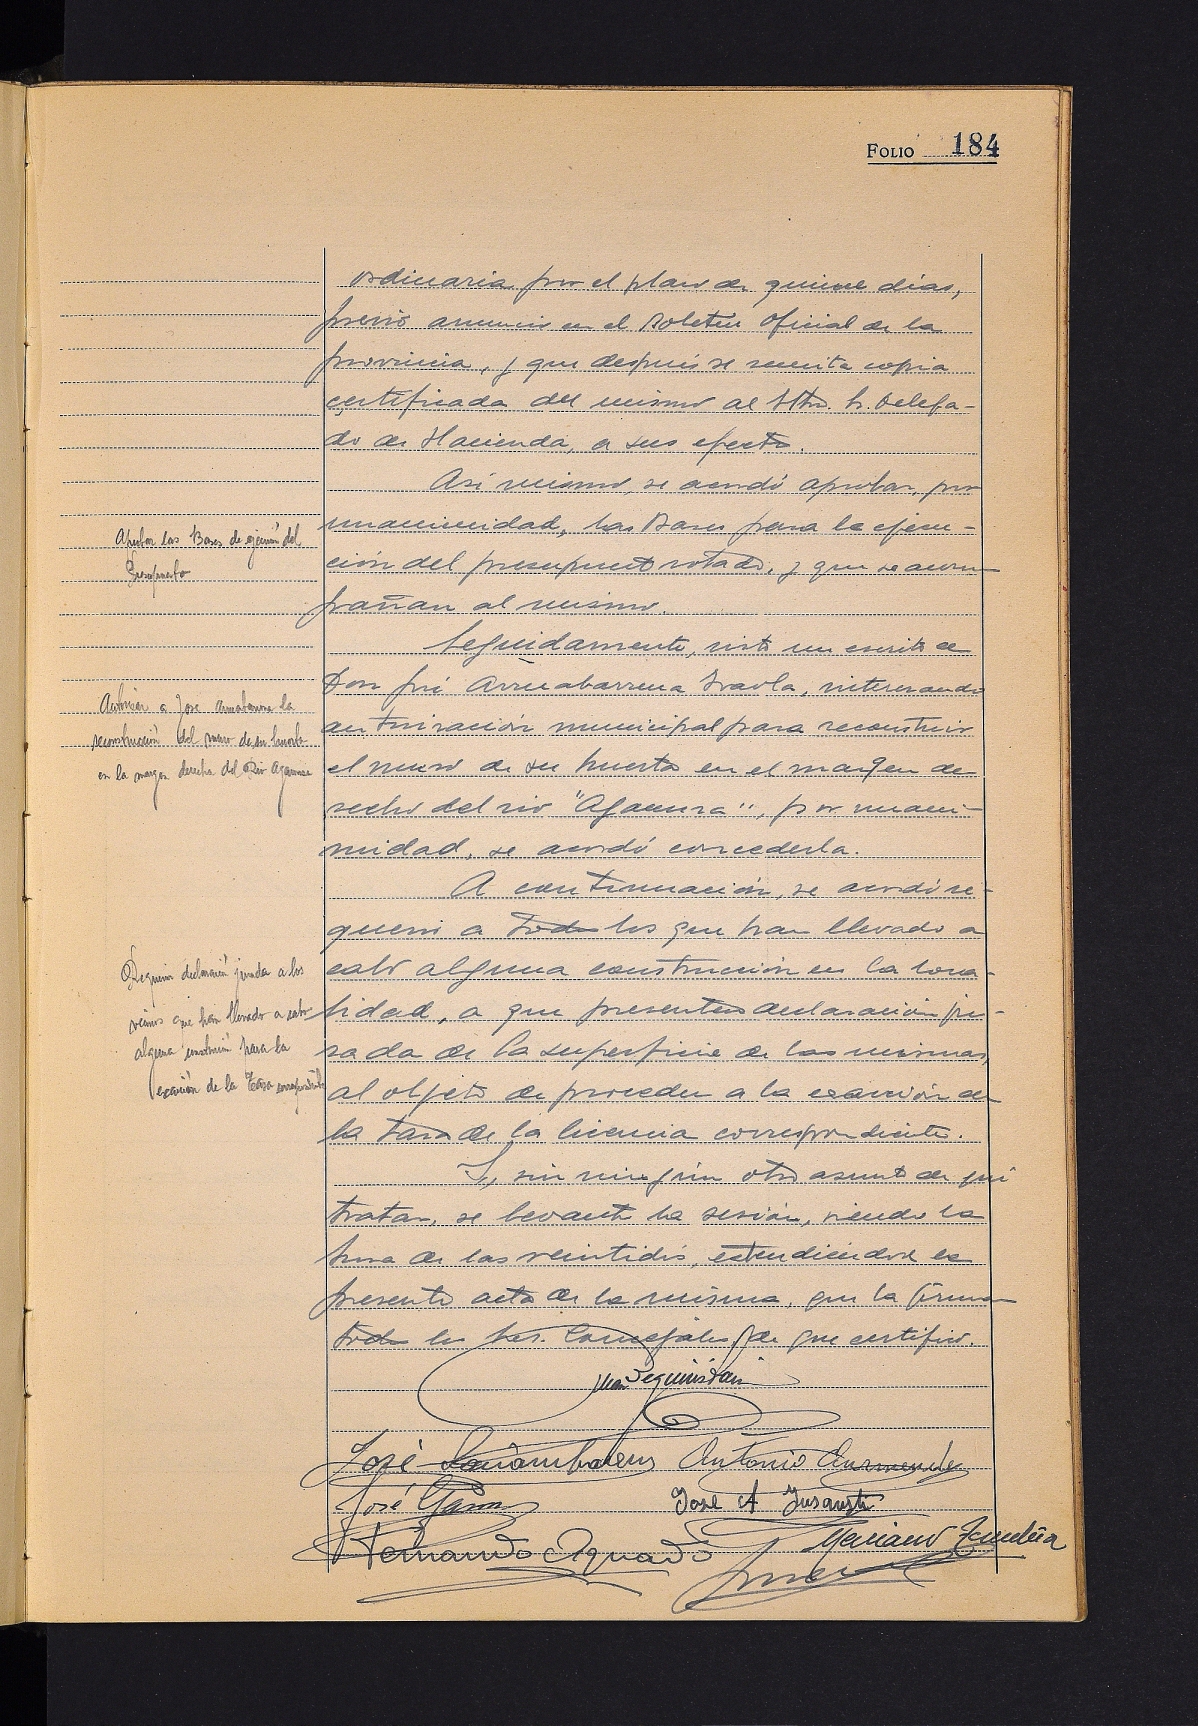 FOLIO 184
ordinaria por el plazo de quince días,
previo anuncio en el Boletín Oficial de la
provincia, y que después se remita copia
certificada del mismo al Iltmo. Sr. Delega-
do de Hacienda, a sus efectos.
Así mismo, se acordó aprobar, por
unanimidad, las Bases para la ejecu-
ción del presupuesto votado, y que se acom
pañan al mismo.
Aprobar las Bases de ejecución del
Presupuesto
Seguidamente, visto un escrito de
Don José Arruabarrena Iraola, interesando
autorización municipal para reconstruir
el muro de su huerta en el margen de
recho del rio "Agaunza", por unani-
midad, se acordó concederla.
Autorizar a Jose Arruabarrena la
reconstrucción del muro de su huerta
en la margen derecha del Rio Agaunza
A continuación, se acordó re-
querir a todos los que han llevado a
cabo alguna construcción en la loca-
lidad, a que presenten declaración ju-
rada de la superficie de las mismas,
al objeto de proceder a la exacción de
la tasa de la licencia correspondiente.
Requerir declaración jurada a los
vecinos que han llevado a cabo
alguna construcción para la
exacción de la Tasa correspondiente
Y, sin ningún otro asunto de que
tratar, se levantó la sesión, siendo la
hora de las veintidós, extendiéndose la
presente acta de la misma, que la firman
todos los Sres. Concejales, de que certifico.
José Antonio
José José A
Fernando Aguado
Mariano